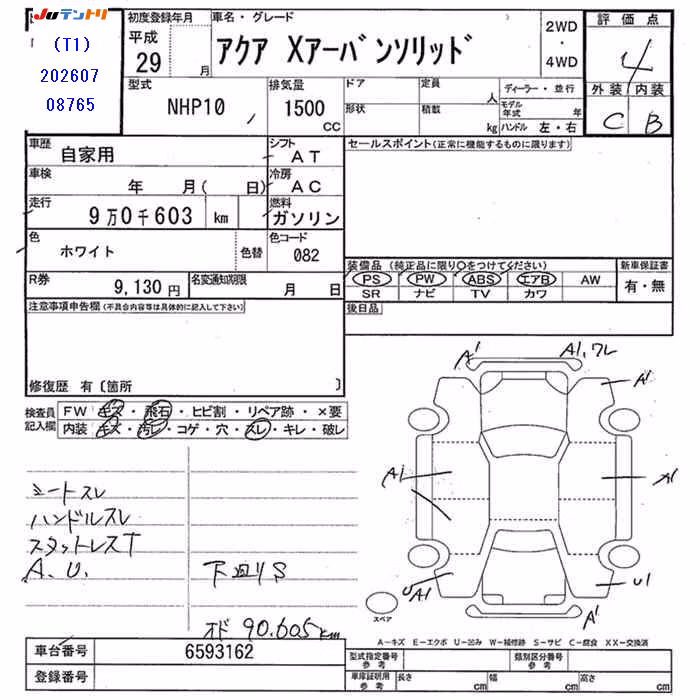 JUテントリ
(T1)
202607
08765
初度登録年月
平成
29
月
車名・グレード
アクア Xアーバンソリッド
2WD
・
4WD
評価点
4
外装 内装
C B
型式
NHP10
排気量
1500
CC
ドア
形状
定員
人
積載
kg
ディーラー・並行
モデル年式 年
ハンドル 左・右
車歴
自家用
シフト
AT
車検
年 月( 日)
冷房
AC
走行
9万0千603 km
燃料
ガソリン
色
ホワイト
色替
色コード
082
R券
9,130円
名変通知期限
月 日
セールスポイント(正常に機能するものに限ります)
装備品(純正品に限り○をつけてください)
PS PW ABS エアB AW
SR ナビ TV カワ
新車保証書
有・無
後日品
注意事項申告欄(不具合内容等は具体的に記入して下さい)
修復歴 有〔箇所 〕
検査員記入欄
FW キズ・飛石・ヒビ割・リペア跡・×要
内装 キズ・汚レ・コゲ・穴・スレ・キレ・破レ
シートスレ
ハンドルスレ
スタットレスT
A.U.
下廻りS
オド 90.605km
A1
A1,ワレ
A1
A1
A1
UA1
U1
A1
スペア
A-キズ E-エクボ U-凹み W-補修跡 S-サビ C-腐食 XX-交換済
車台番号
6593162
登録番号
型式指定番号
参考
類別区分番号
参考
車庫証明用
参考
長さ cm
幅 cm
高さ cm